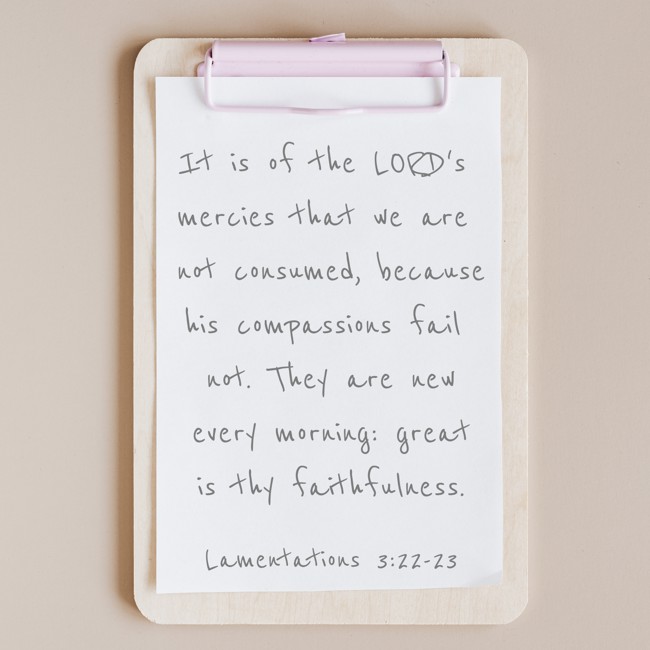 It is of the LORD's
mercies that we are
not consumed, because
his compassions fail
not. They are new
every morning: great
is thy faithfulness.
Lamentations 3:22-23